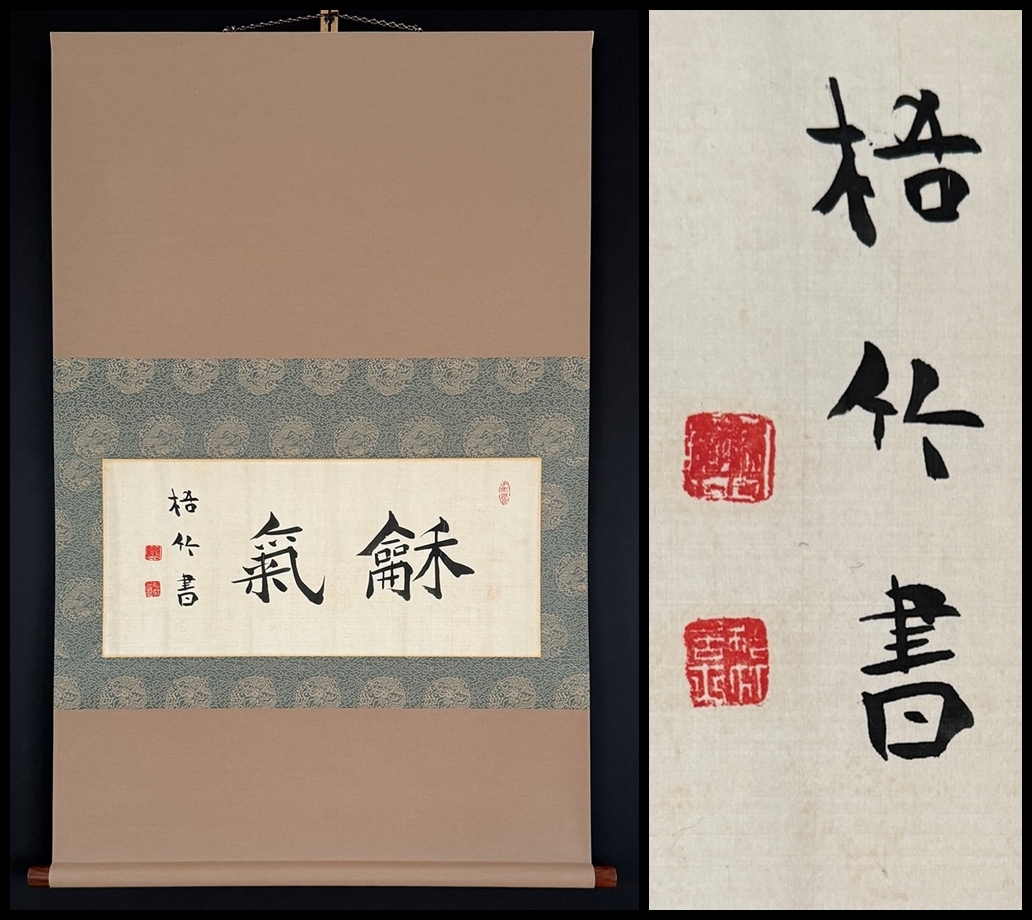 龢氣
梧竹書
梧竹書